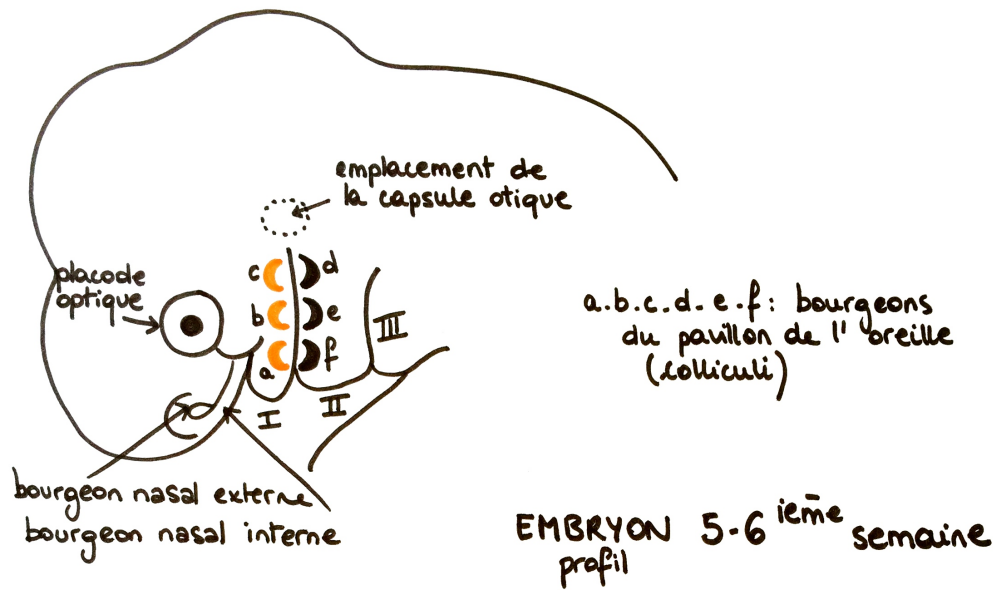 emplacement de
la capsule otique
placode
optique
c
d
b
e
a
f
I
II
III
a.b.c.d.e.f: bourgeons
du pavillon de l'oreille
(colliculi)
bourgeon nasal externe
bourgeon nasal interne
EMBRYON 5-6 ième semaine
profil